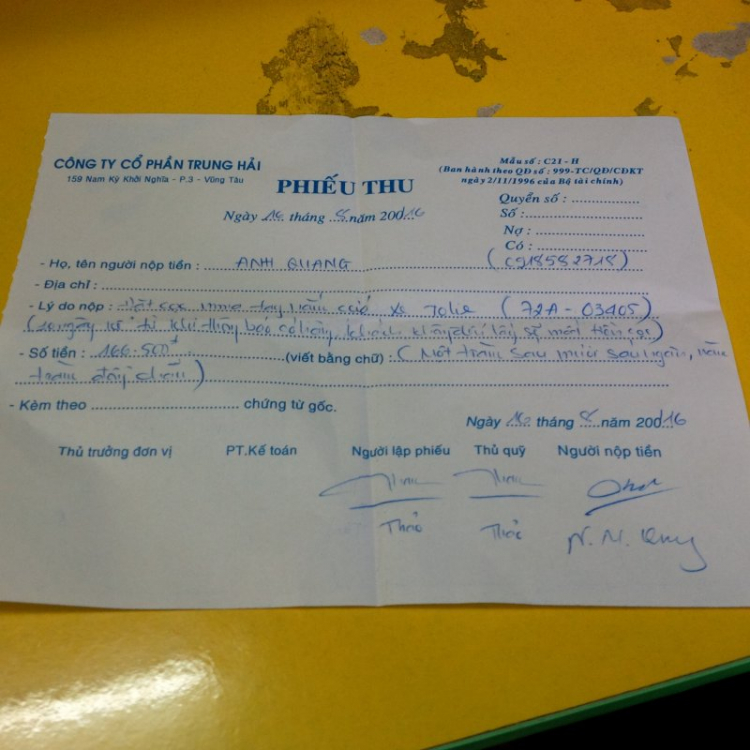 CÔNG TY CỔ PHẦN TRUNG HẢI
159 Nam Kỳ Khởi Nghĩa - P.3 - Vũng Tàu
PHIẾU THU
Mẫu số : C21 - H
(Ban hành theo QĐ số : 999-TC/QĐ/CĐKT
ngày 2/11/1996 của Bộ tài chính)
Ngày 18 tháng 8 năm 200 16
Quyển số :
Số :
Nợ :
Có :
- Họ, tên người nộp tiền : ANH QUANG (0918582718)
- Địa chỉ :
- Lý do nộp : Đặt cọc tay xe (72A - 03405)
(10 ngày từ khi thông báo có hàng, khách không lấy sẽ mất tiền cọc)
- Số tiền : 166.500đ (viết bằng chữ) : (Một trăm sáu mươi sáu ngàn, năm
trăm đồng chẵn)
- Kèm theo chứng từ gốc.
Ngày 18 tháng 8 năm 200 16
Thủ trưởng đơn vị PT.Kế toán Người lập phiếu Thủ quỹ Người nộp tiền
Thảo Thảo N. M.